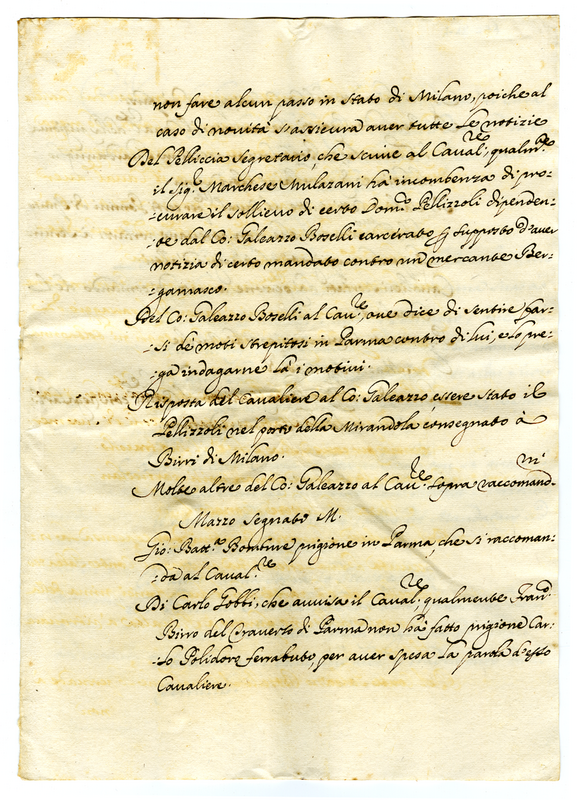 non fare alcun passo in Stato di Milano, poiche al
caso di novità s'assicura aver tutte le notizie
Del Pelliccia Segretario, che scrive al Caval.re, qualm.te
il Sig.r Marchese Mulazani hà incombenza di pro-
-curare il sollievo di certo Dom.co Pellizzoli dipenden-
-te dal Co: Galeazzo Boselli carcerato p supposto d'aver
notizia di certo mandato contro un mercante Ber-
-gamasco.
Del Co: Galeazzo Boselli al Cav.re, ove dice di sentire far-
-si de moti strepitosi in Parma contro di lui, e lo pre-
-ga indagarne là i motivi.
Risposta del Cavaliere al Co: Galeazzo essere stato il
Pellizzoli nel porto della Mirandola consegnato à
Birri di Milano.
Molte altre del Co: Galeazzo al Cav.re sopra raccomand.ni
Mazzo segnato M.
Gio: Batt.a Bonture prigione in Parma, che si raccoman-
-da al Caval.re
Di Carlo Gobbi, che avvisa il Caval.re, qualmente Fran.co
Birro del Traverso di Parma non hà fatto prigione Car-
-lo Polidoro ferrabuto per aver spesa la parola d'esso
Cavaliere.